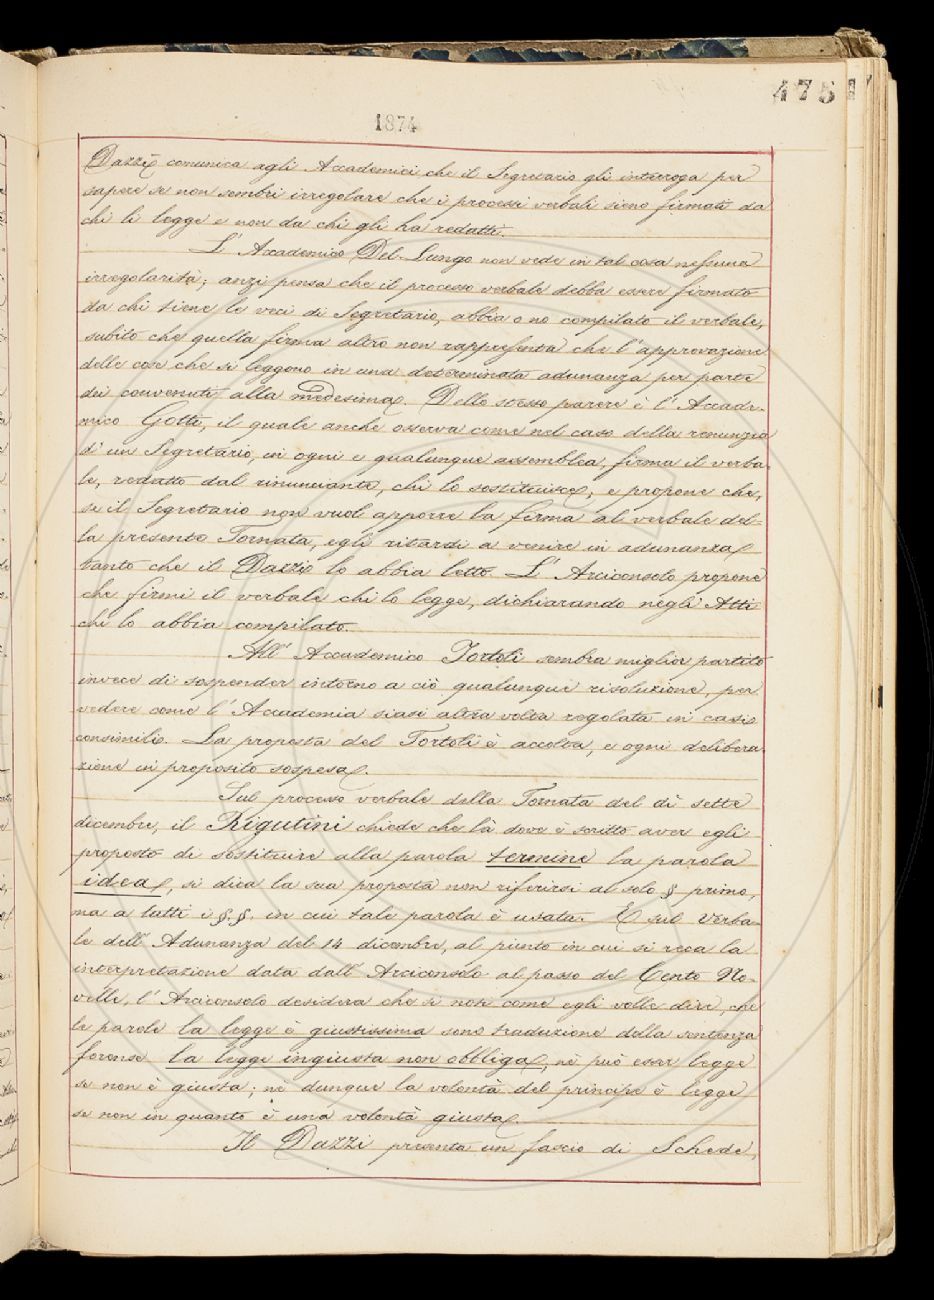 4751
1874
Dazzi comunica agli Accademici che il Segretario gli interroga per
sapere se non sembri irregolare che i processi verbali sieno firmati da
chi li legge e non da chi gli ha redatti.
L' Accademico Del-Lungo non vede in tal cosa nessuna
irregolarità; anzi pensa che il processo verbale debba essere firmato
da chi tiene le veci di Segretario, abbia o no compilato il verbale,
subito che quella firma altro non rappresenta che l'approvazione
delle cose che si leggono in una determinata adunanza per parte
dei convenuti alla medesima. Dello stesso parere è l' Accade-
mico Gotti, il quale anche osserva come nel caso della renunzia
di un Segretario, in ogni e qualunque assemblea, firma il verba-
le, redatto dal rinunciante, chi lo sostituisce; e propone che,
se il Segretario non vuol apporre la firma al verbale del-
la presente Tornata, egli ritardi a venire in adunanza
tanto che il Dazzi lo abbia letto. L' Arciconsolo propone
che firmi il verbale chi lo legge, dichiarando negli Atti
chi lo abbia compilato.
All' Accademico Tortoli sembra miglior partito
invece di sospender intorno a ciò qualunque risoluzione, per
vedere come l' Accademia siasi altra volta regolata in casi
consimili. La proposta del Tortoli è accolta, e ogni delibera-
zione in proposito sospesa.
Sul processo verbale della Tornata del dì sette
dicembre, il Rigutini chiede che là dove è scritto aver egli
proposto di sostituire alla parola termine la parola
idea, si dica la sua proposta non riferirsi al solo § primo,
ma a tutti i §.§. in cui tale parola è usata. E sul Verba-
le dell' Adunanza del 14 dicembre, al punto in cui si reca la
interpretazione data dall' Arciconsolo al passo del Cento No-
velle, l' Arciconsolo desidera che si noti come egli volle dire, che
le parole la legge è giustissima sono traduzione della sentenza
forense la legge ingiusta non obbliga, nè può esser legge
se non è giusta; nè dunque la volontà del principe è legge
se non in quanto è una volontà giusta.
Il Dazzi presenta un fascio di Schede,